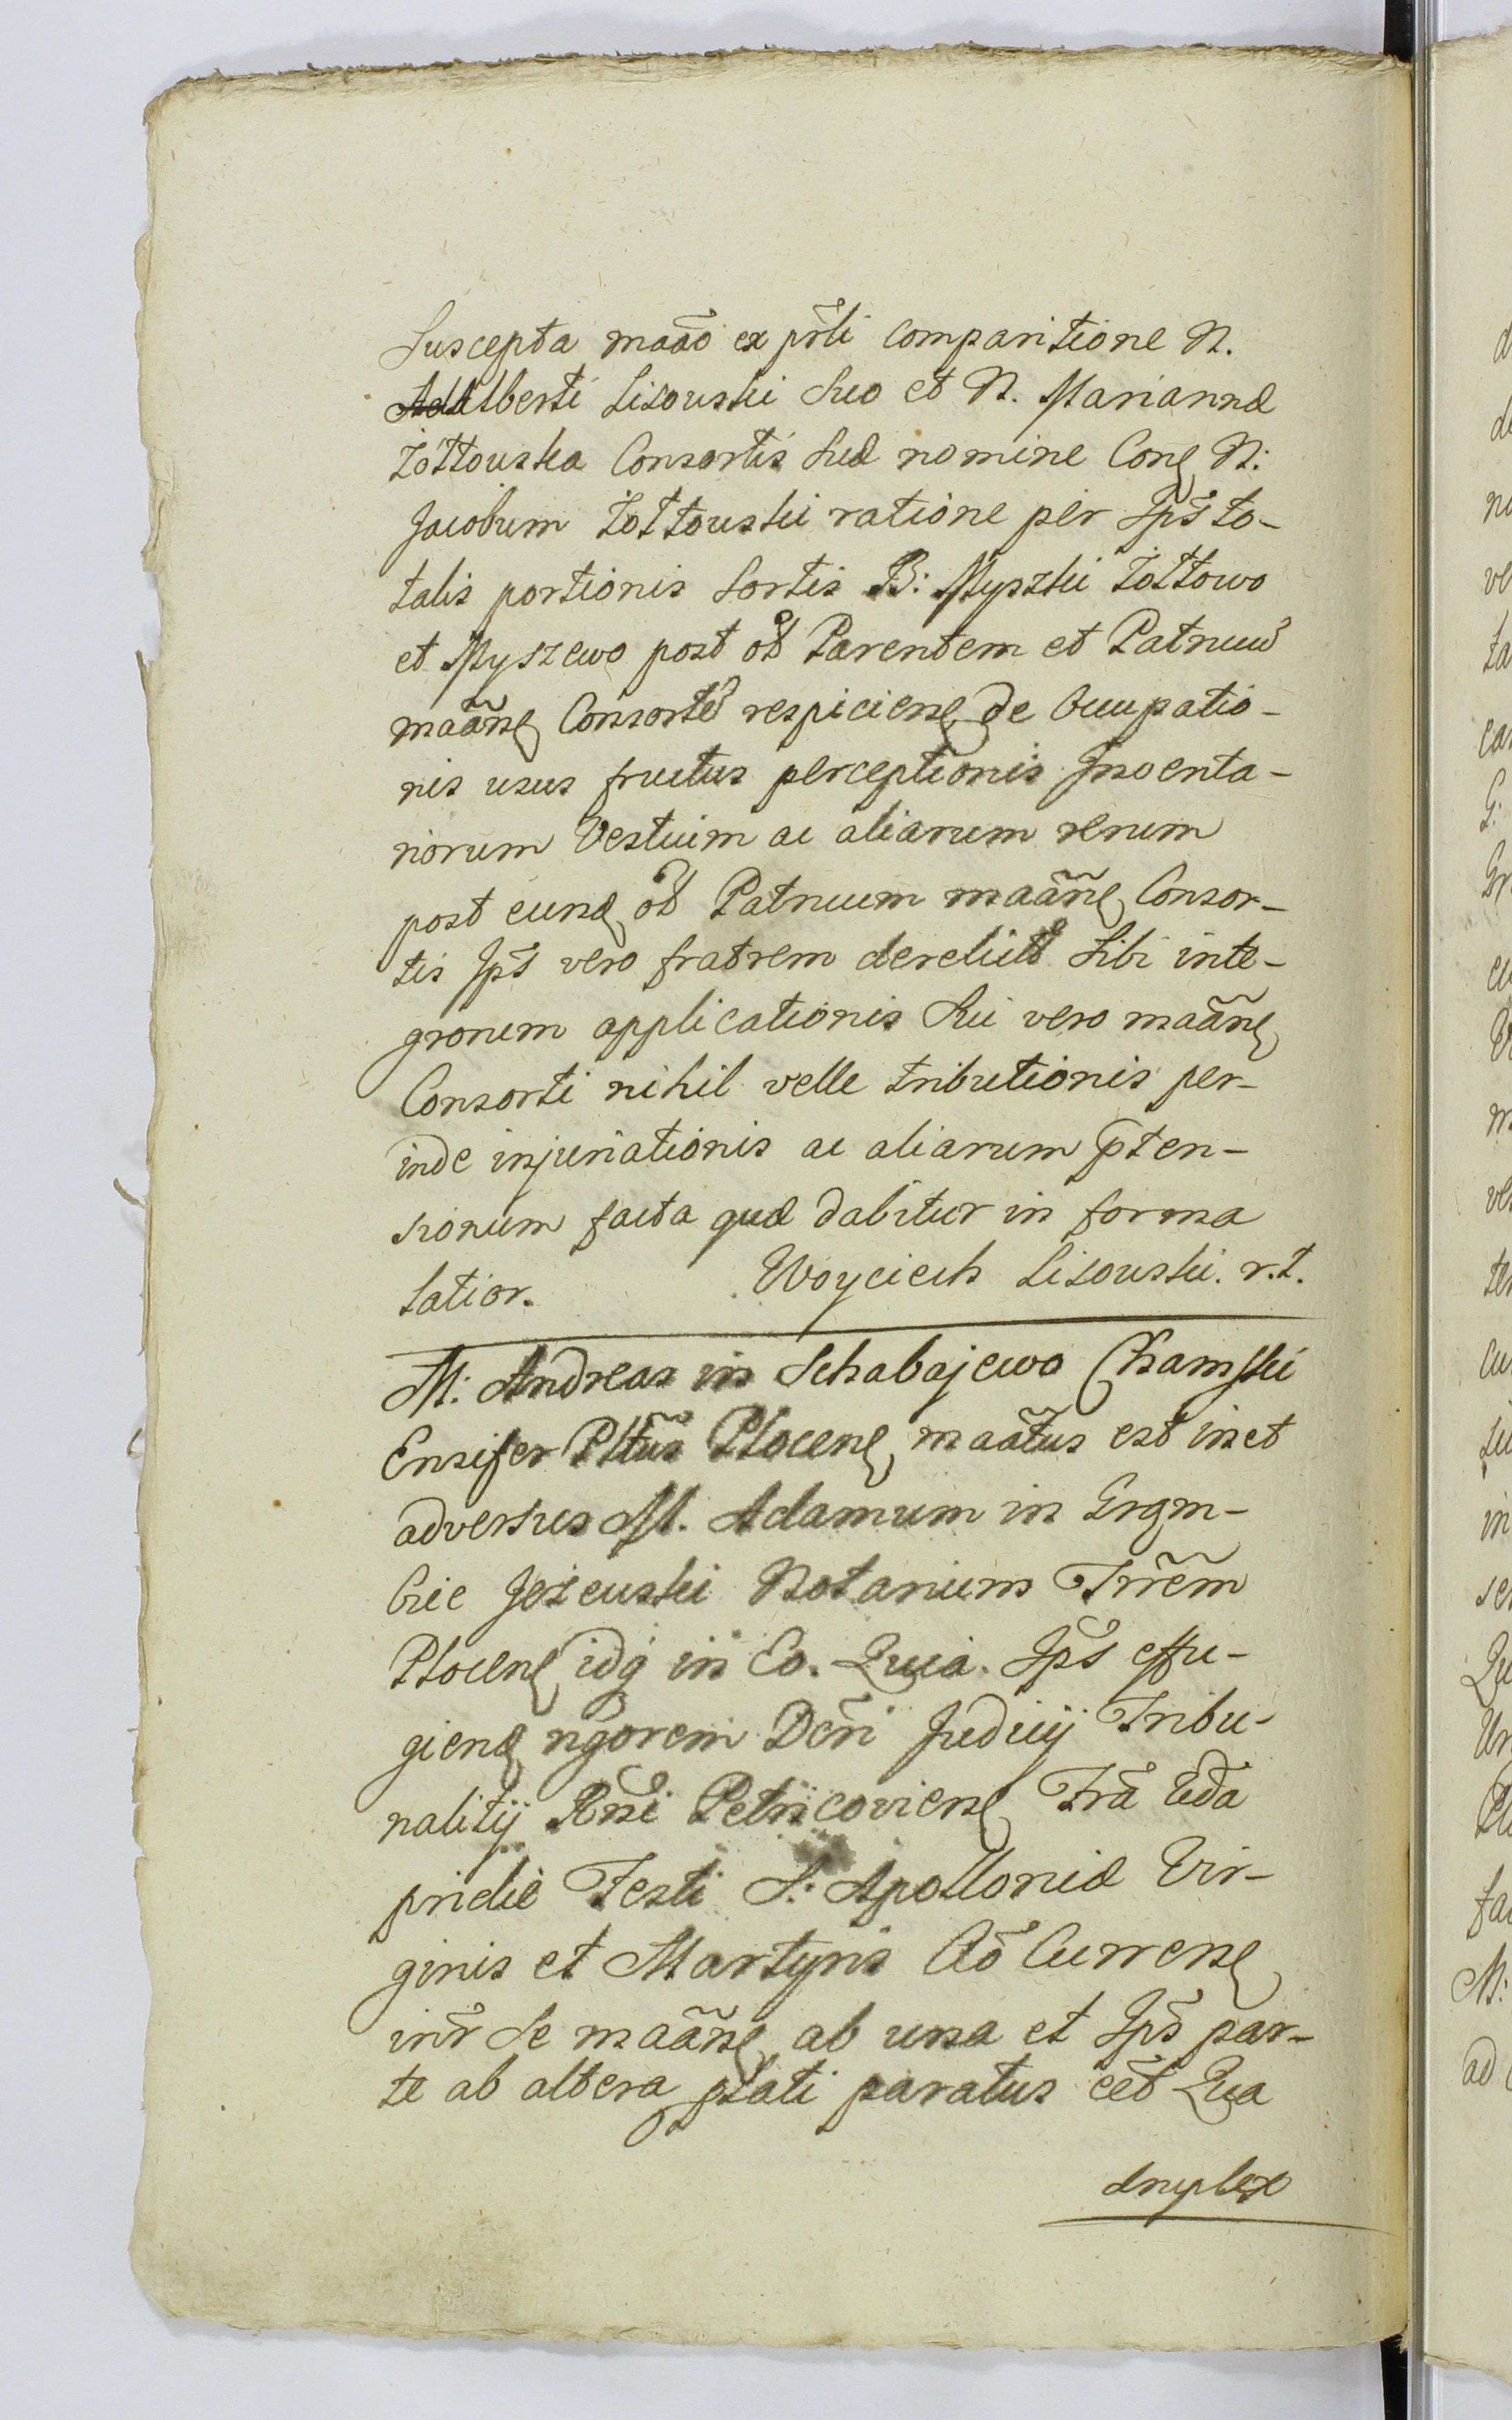 Suscepta maão ex prli comparitione N.
Adalberti Lisowski Suo et N. Mariannæ
Żółtowska Consortis Suæ nomine Conq N:
Jacobum Żółtowski ratione per Ips to-
talis portionis Sortis B: Myszki Żółtowo
et Myszewo post ob Parentem et Patruum
maãne Consorte respiciene de Occupatio-
nis usus fructus perceptionis Inventa-
riorum Vestium ac aliarum rerum
post eund ob Patruum maãne Consor-
tis Ips vero fratrem derelict Sibi inte-
gronum applicationis Sui vero maãne
Consorti nihil velle tributionis per-
inde injuriationis ac aliarum pten-
sionum facta quæ dabitur in forma
latior. Woyciech Lisowski. r.t.
M: Andreas in Schabajewo Chamski
Ensifer Pltũs Plocene maãtus est inet
adversus M. Adamum in Grąm-
bie Jeżewski Notarium Trrẽm
Plocene idq in Eo. Quia. Ips effu-
giend rigorem Dcri Judicij Tribu-
nalitij Rni Petricoviene Fra Vda
pridie Festi S: Apolloniæ Vir-
ginis et Martyris Aõ Currene
intr Se maãne ab una et Ips par-
te ab altera plati paratus cet Qua
druplex